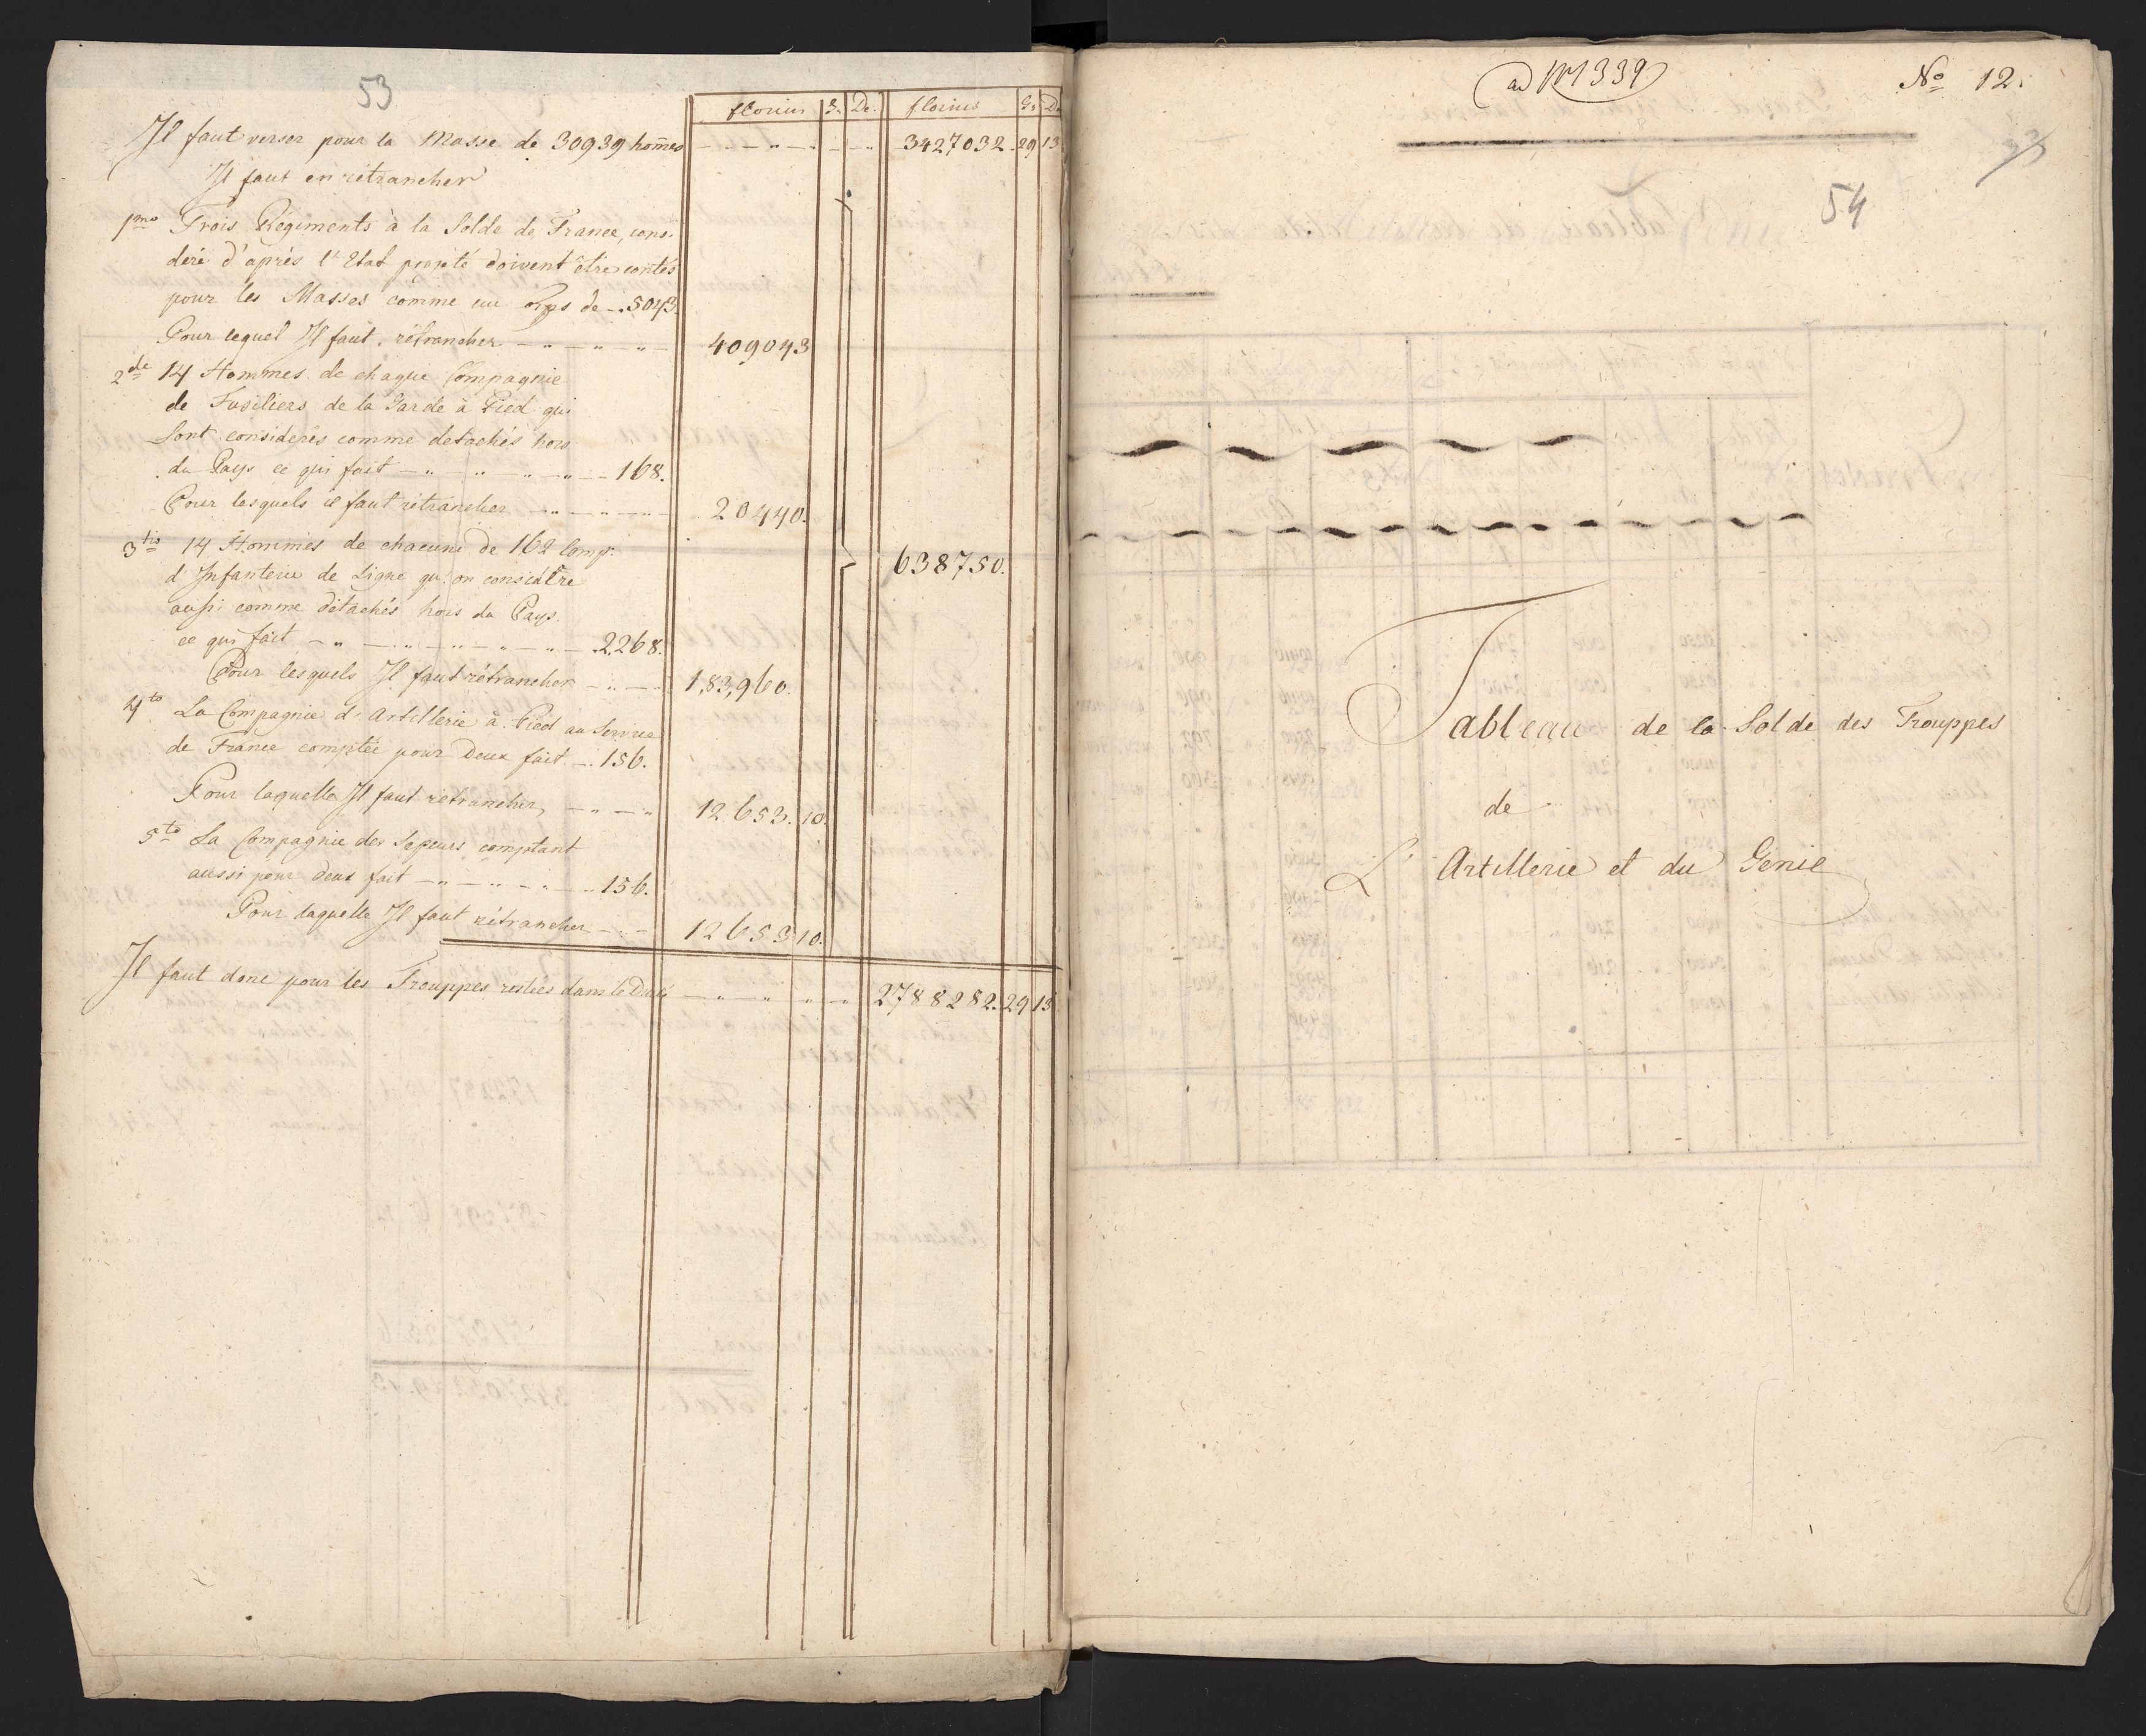 53
florins G. De. florins Gr. De.
Il faut verser pour la Masse de 30939 hom̄es — „ — „ — 3427032. 29 13
Il faut en rétrancher
1mo Trois Régiments à la Solde de France, consi
deré d'après l'Etat projeté doivent être contés
pour les Masses comme un corps de — . 5043.
Pour lequel Il faut rétrancher — „ — „ — „ — 409043
2de 14 Hommes de chaque Compagnie
de Fusiliers de la Garde à Pied qui
Sont considerés comme detachés hors
du Pays ce qui fait — „ — „ — „ — „ — 168.
Pour lesquels il faut rétrancher — „ — „ — 20440.
3tio 14 Hommes de chacune de 162 Comp:
d'Infanterie de Ligne qu'on considère
aussi comme détachés hors du Pays
638750.
ce qui fait — „ — „ — „ — „ — „ — 2268.
Pour lesquels Il faut rétrancher — „ — 1,83,960.
4to La Compagnie d'Artillerie à Pied au Service
de France comptée pour Deux fait — . 156.
Pour laquelle Il faut rétrancher, — „ — „ 12653. 10.
5to La Compagnie des Sapeurs comptant
aussi pour deux fait — „ — „ — „ — 156.
Pour laquelle Il faut rétrancher — „ — 12653 10.
Il faut donc pour les Trouppes restées dans le Duché — „ — „ — „ — 2788282. 29 13
ad Nr 1339
No 12.
54
Tableau de la Solde des Trouppes
de
L'Artillerie et du Génie